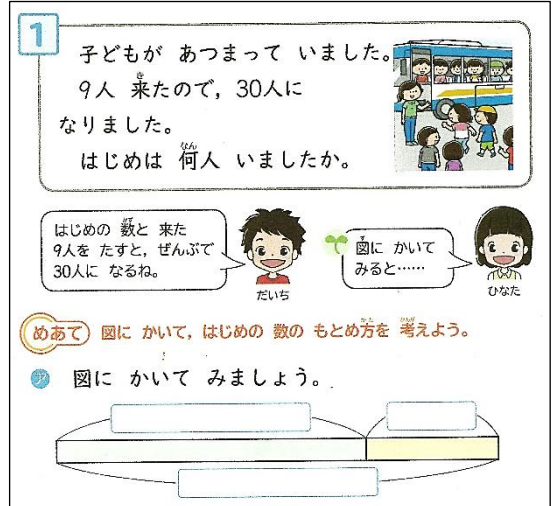 1
子どもが あつまって いました。
9人 来たので, 30人に
なりました。
はじめは 何人 いましたか。
はじめの 数と 来た
9人を たすと, ぜんぶで
30人に なるね。
だいち
図に かいて
みると……
ひなた
めあて 図に かいて, はじめの 数の もとめ方を 考えよう。
ア 図に かいて みましょう。